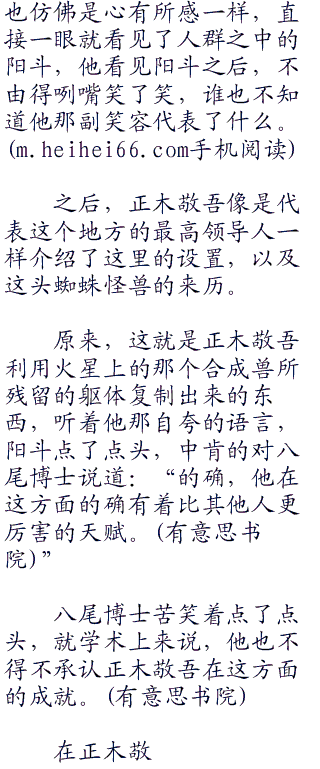 也仿佛是心有所感一样，直
接一眼就看见了人群之中的
阳斗，他看见阳斗之后，不
由得咧嘴笑了笑，谁也不知
道他那副笑容代表了什么。
(m.heihei66.com手机阅读)
之后，正木敬吾像是代
表这个地方的最高领导人一
样介绍了这里的设置，以及
这头蜘蛛怪兽的来历。
原来，这就是正木敬吾
利用火星上的那个合成兽所
残留的躯体复制出来的东
西，听着他那自夸的语言，
阳斗点了点头，中肯的对八
尾博士说道：“的确，他在
这方面的确有着比其他人更
厉害的天赋。(有意思书
院)”
八尾博士苦笑着点了点
头，就学术上来说，他也不
得不承认正木敬吾在这方面
的成就。(有意思书院)
在正木敬